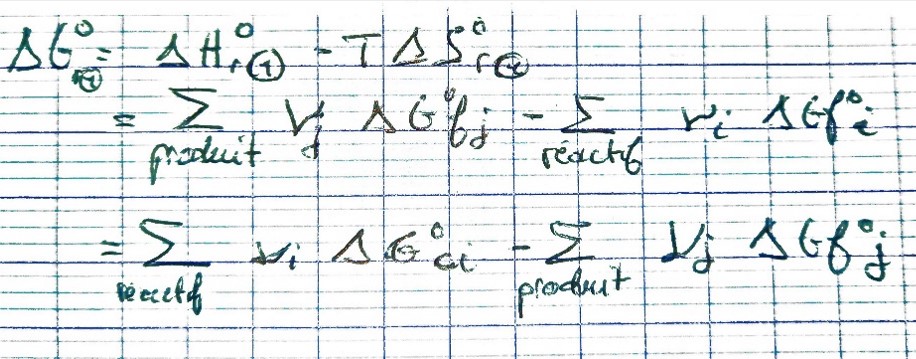 ΔG°r① = ΔH°r① - T ΔS°r①
= Σ produit νj ΔG°fj - Σ réactif νi ΔGf°i
= Σ réactif νi ΔG°ci - Σ produit νj ΔGf°j